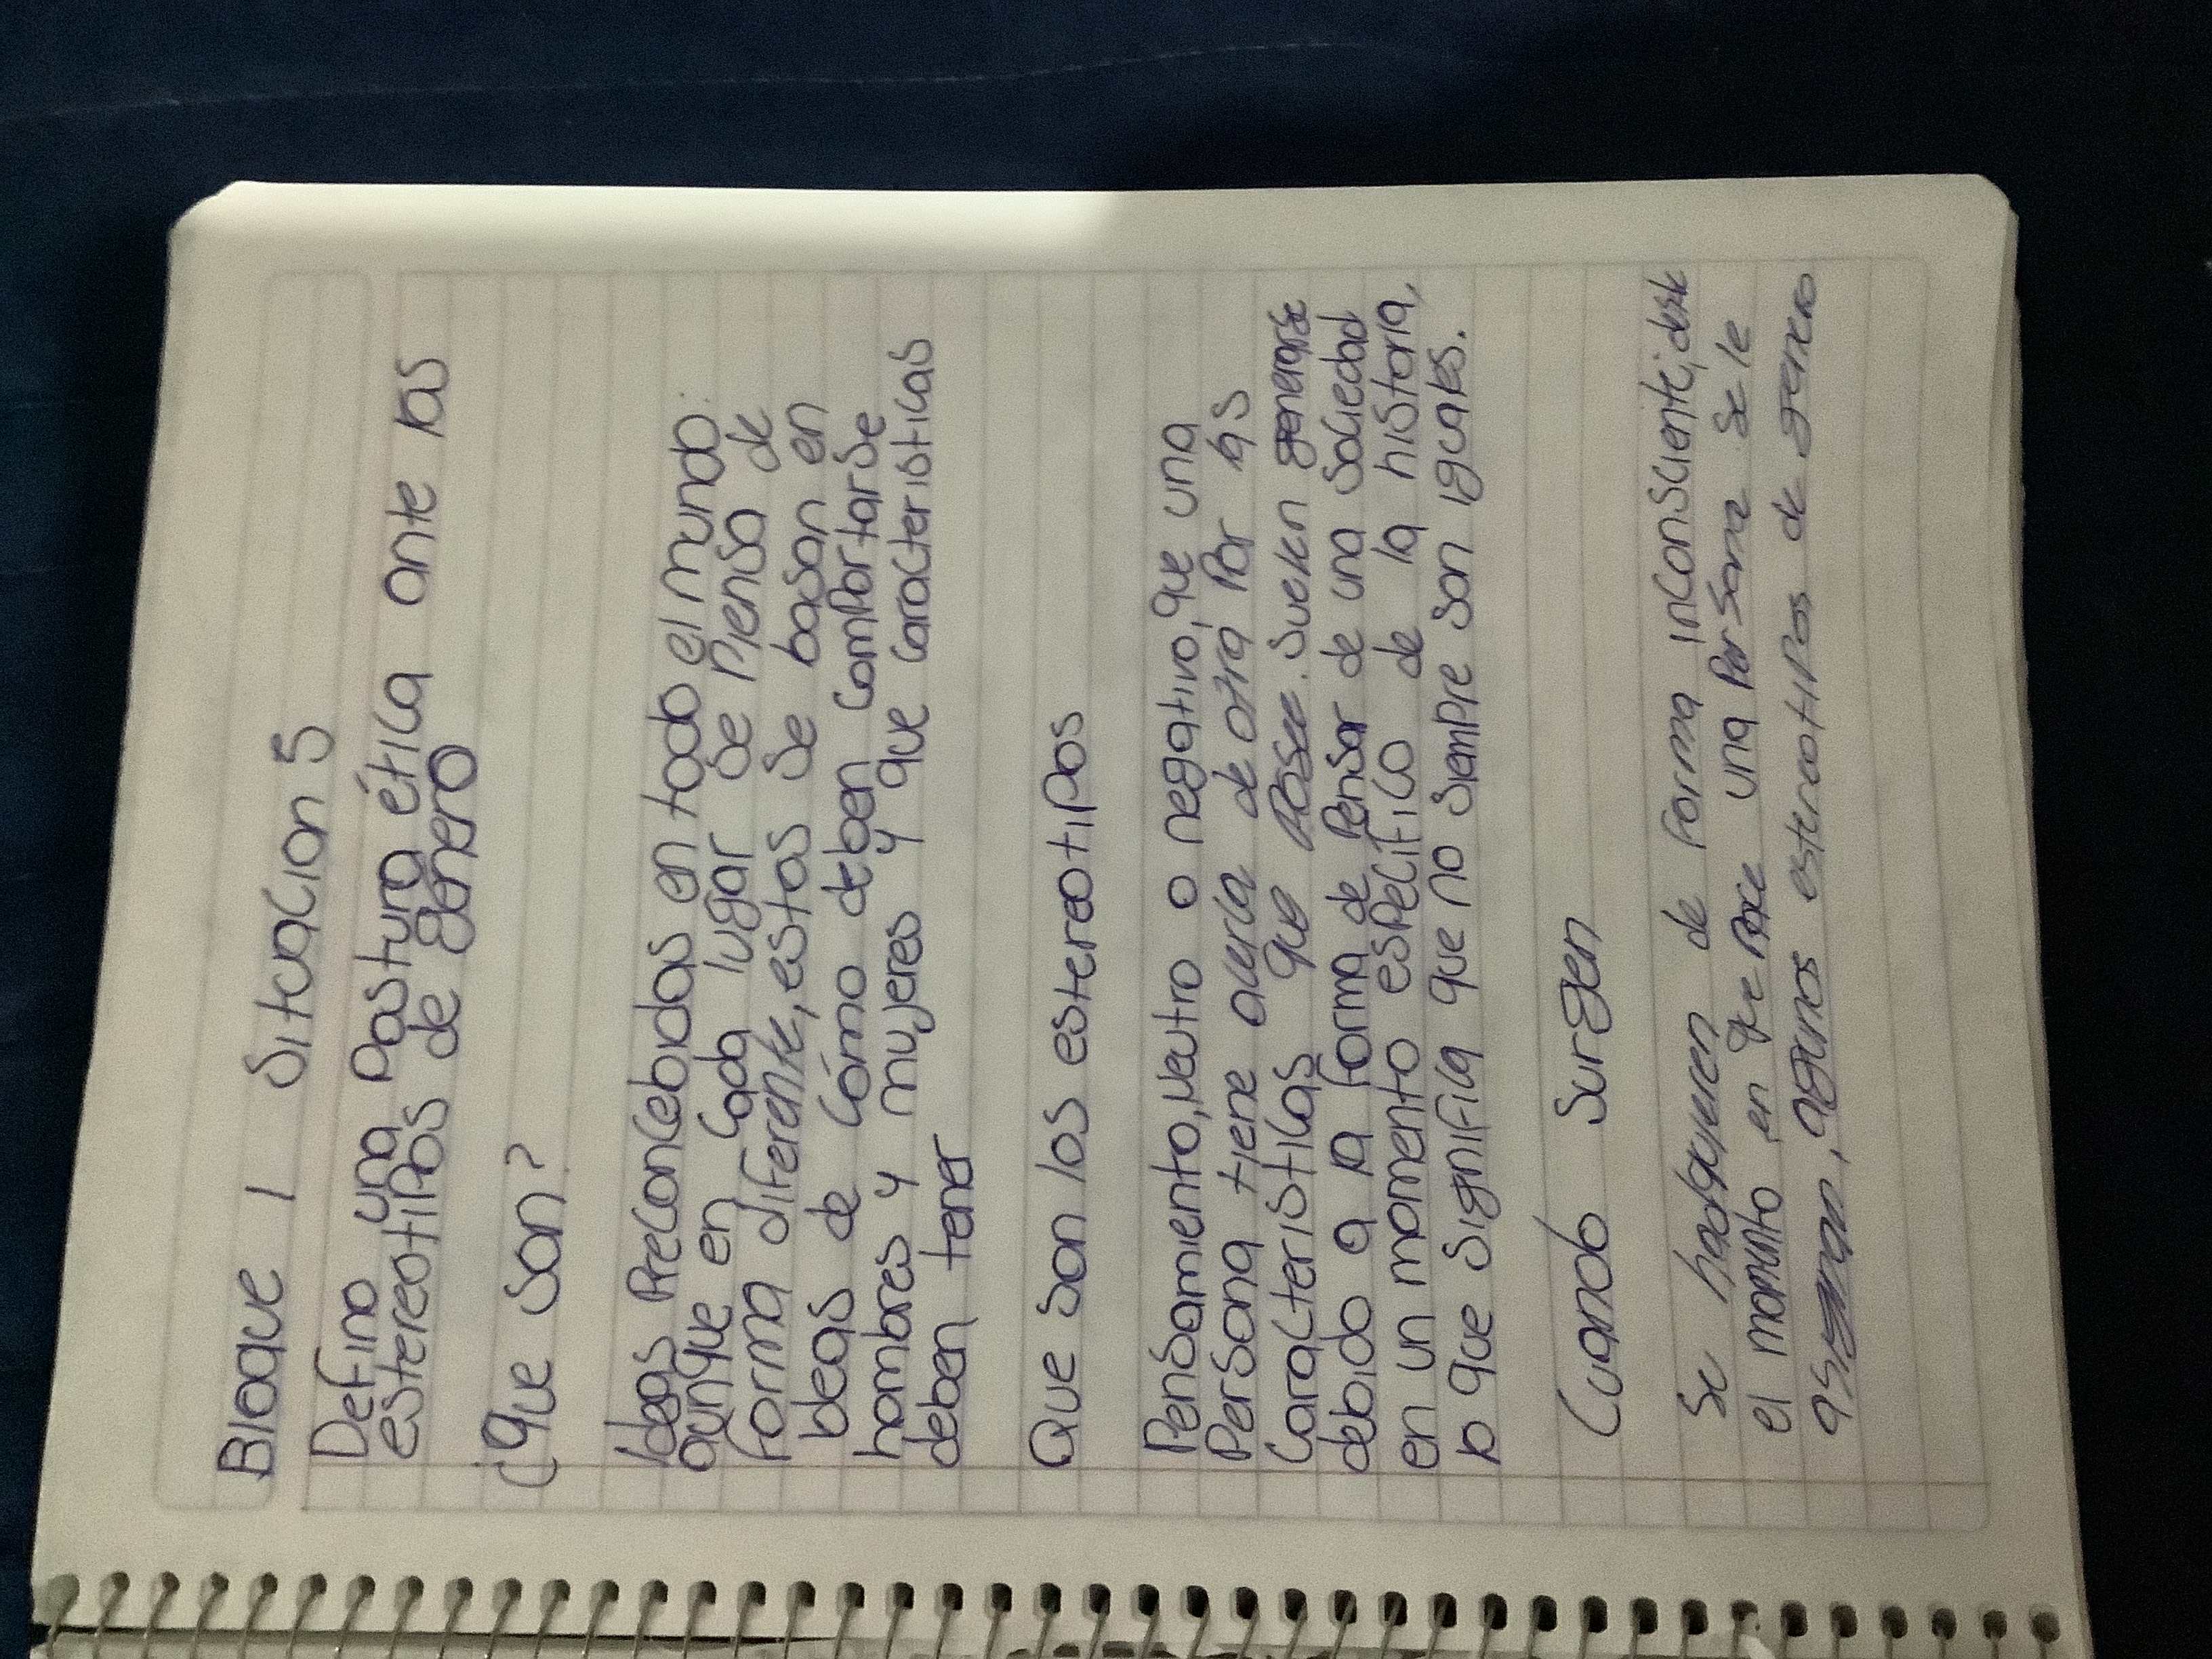 Bloque 1 Situacion 5
Defino una Postura ética ante los
estereotipos de género
¿Que son?
Ideas Preconcebidas en todo el mundo:
aunque en cada lugar se piensa de
forma diferente, estas se basan en
ideas de cómo deben comportarse
hombres y mujeres y que caracteristicas
deben tener
Que son los estereotipos
Pensamiento, neutro o negativo, que una
Persona tiene acerca de otra Por las
Caracteristicas que posee. Suelen generarse
debido a la forma de Pensar de una sociedad
en un momento especifico de la historia,
lo que significa que no siempre son iguales.
Cuando surgen
Se hadquieren de forma inconsciente, desde
el momento en que nace una persona se le
asignan, algunos estereotipos de genero